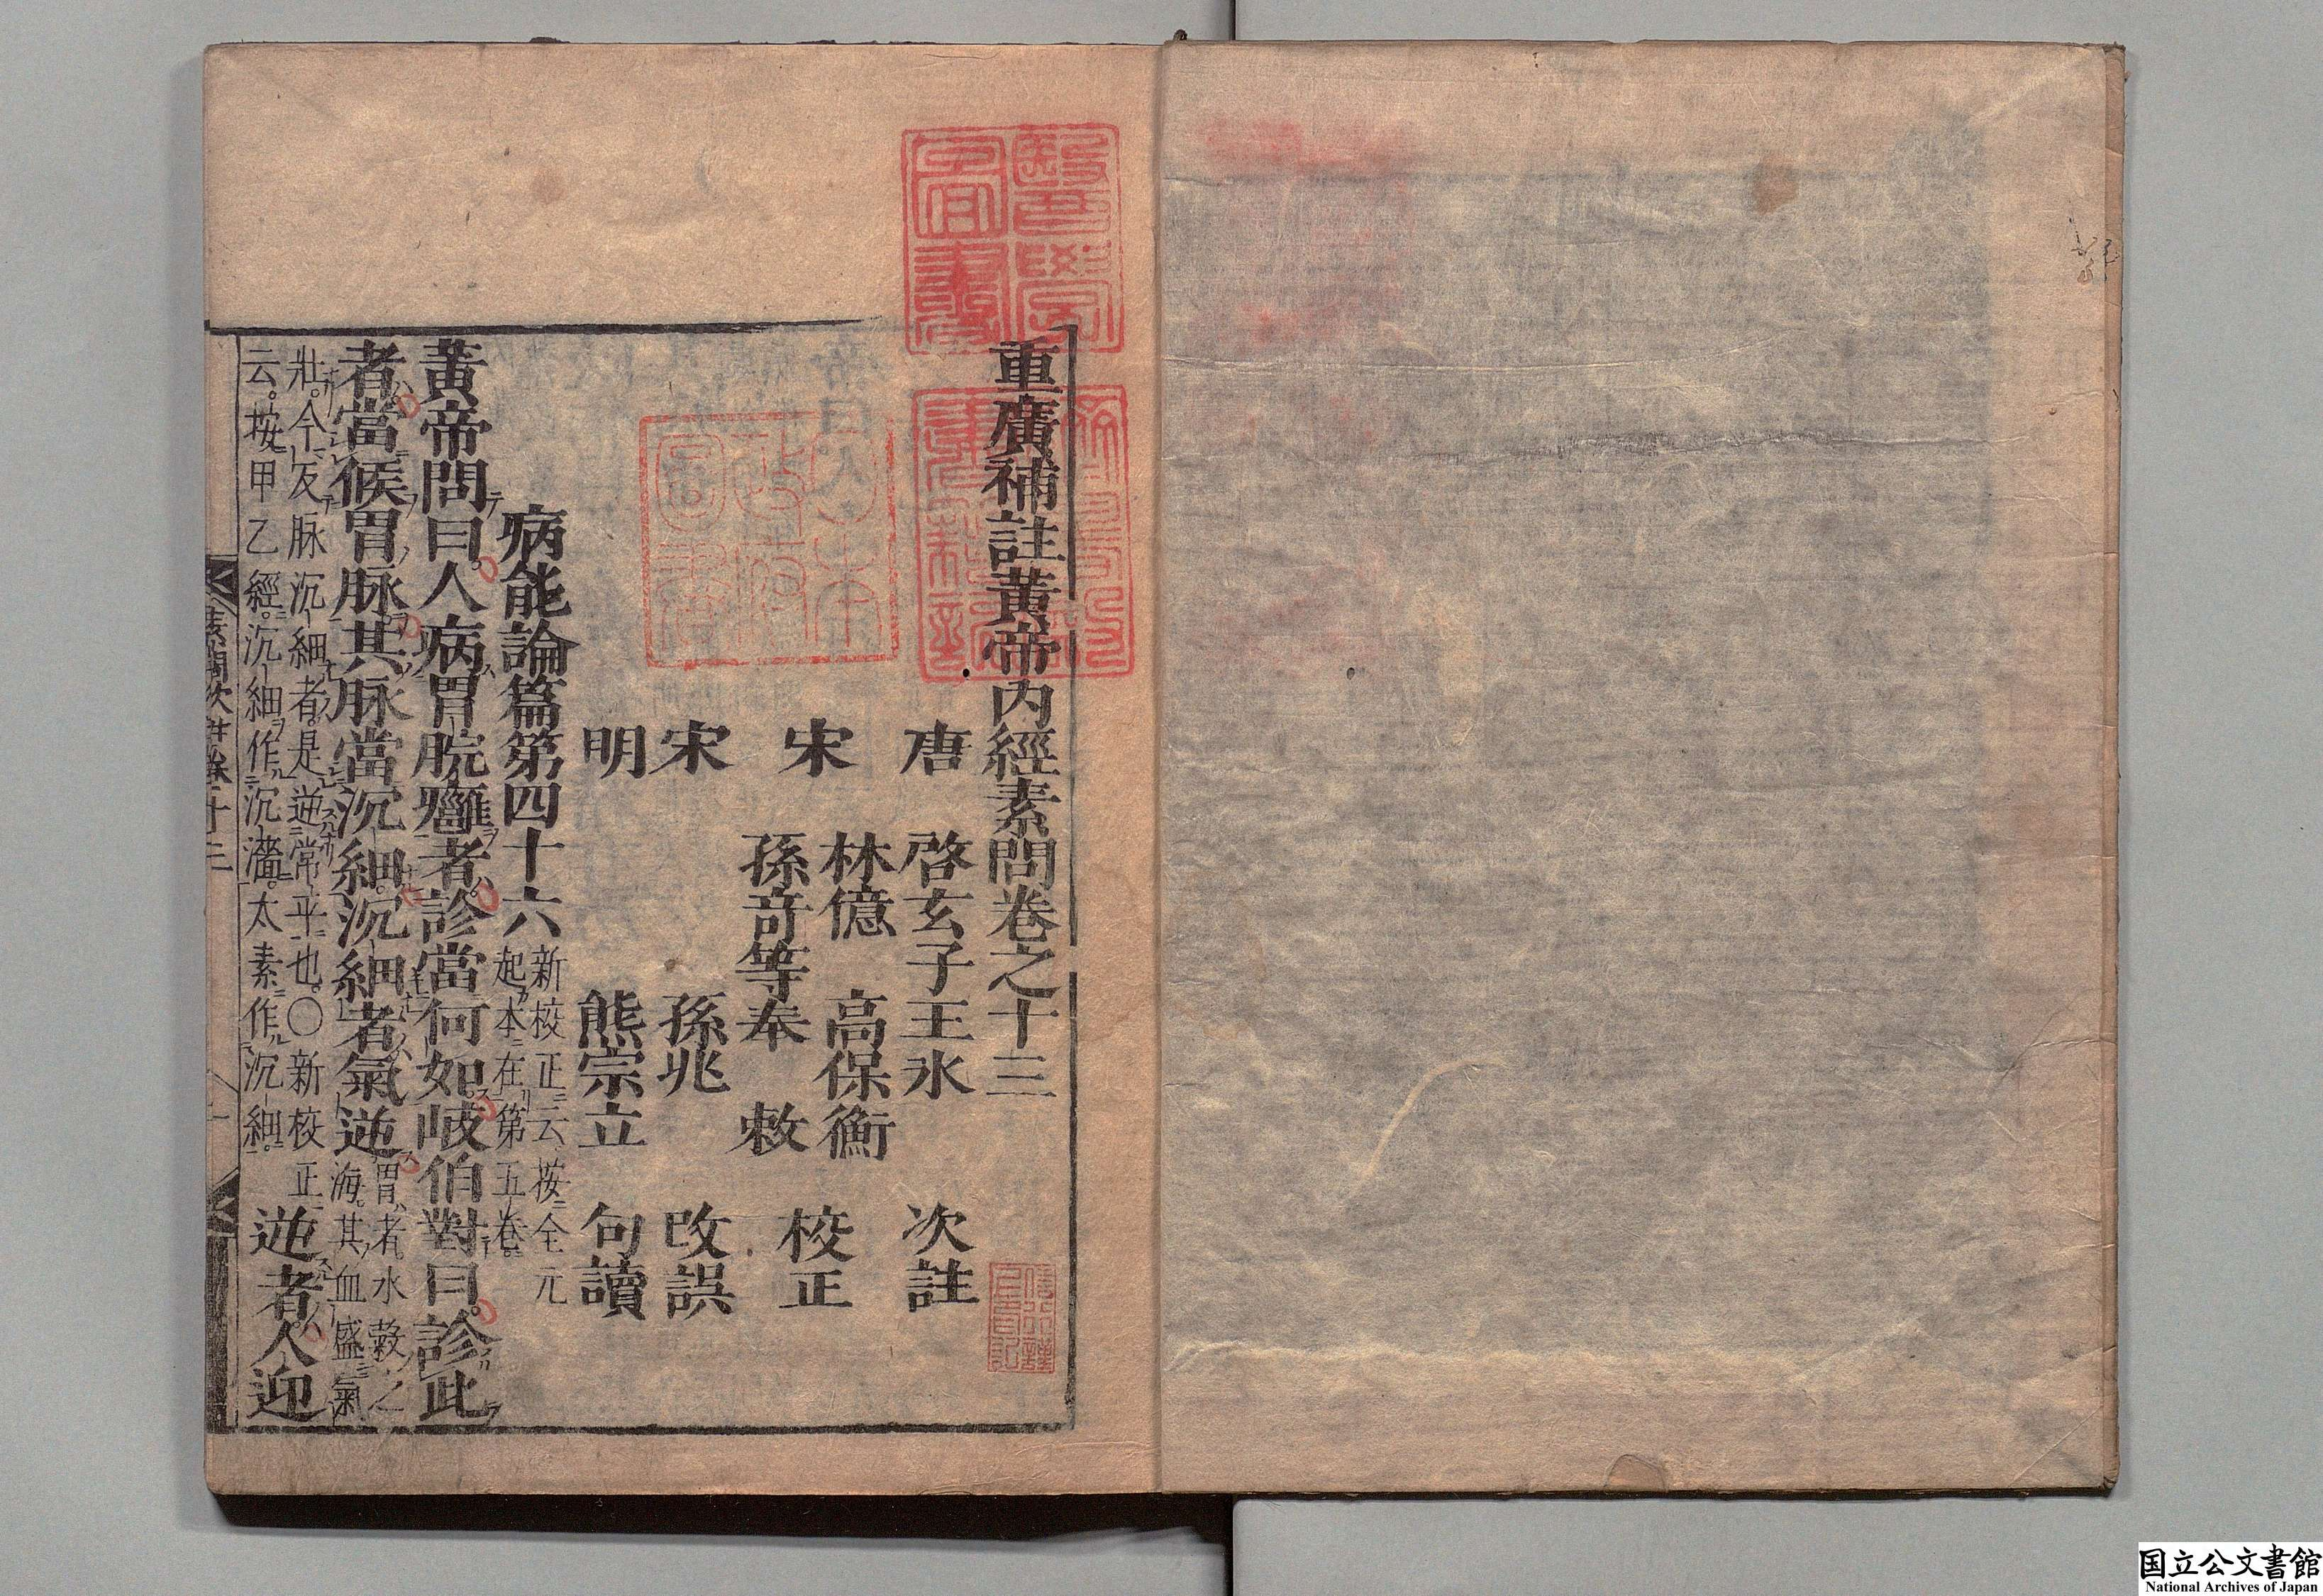 重廣補註黃帝内經素問卷之十三
唐 啓玄子王冰 次註
宋 林億 高保衡 校正
孫竒等奉 敕
宋 孫兆 改誤
明 熊宗立 句讀
病能論篇第四十六 新校正云按全元起本在第五卷
黃帝問曰人病胃脘癰者診當何如岐伯對曰診此
者當候胃脉其脉當沉細沉細者氣逆 胃者水穀之海其血盛氣
壯今反脉沉細者是逆常平也○新校正
云按甲乙經沉細作沉濇太素作沉細 逆者人迎
醫學
官書
日本
政府
圖書
国立公文書館
National Archives of Japan